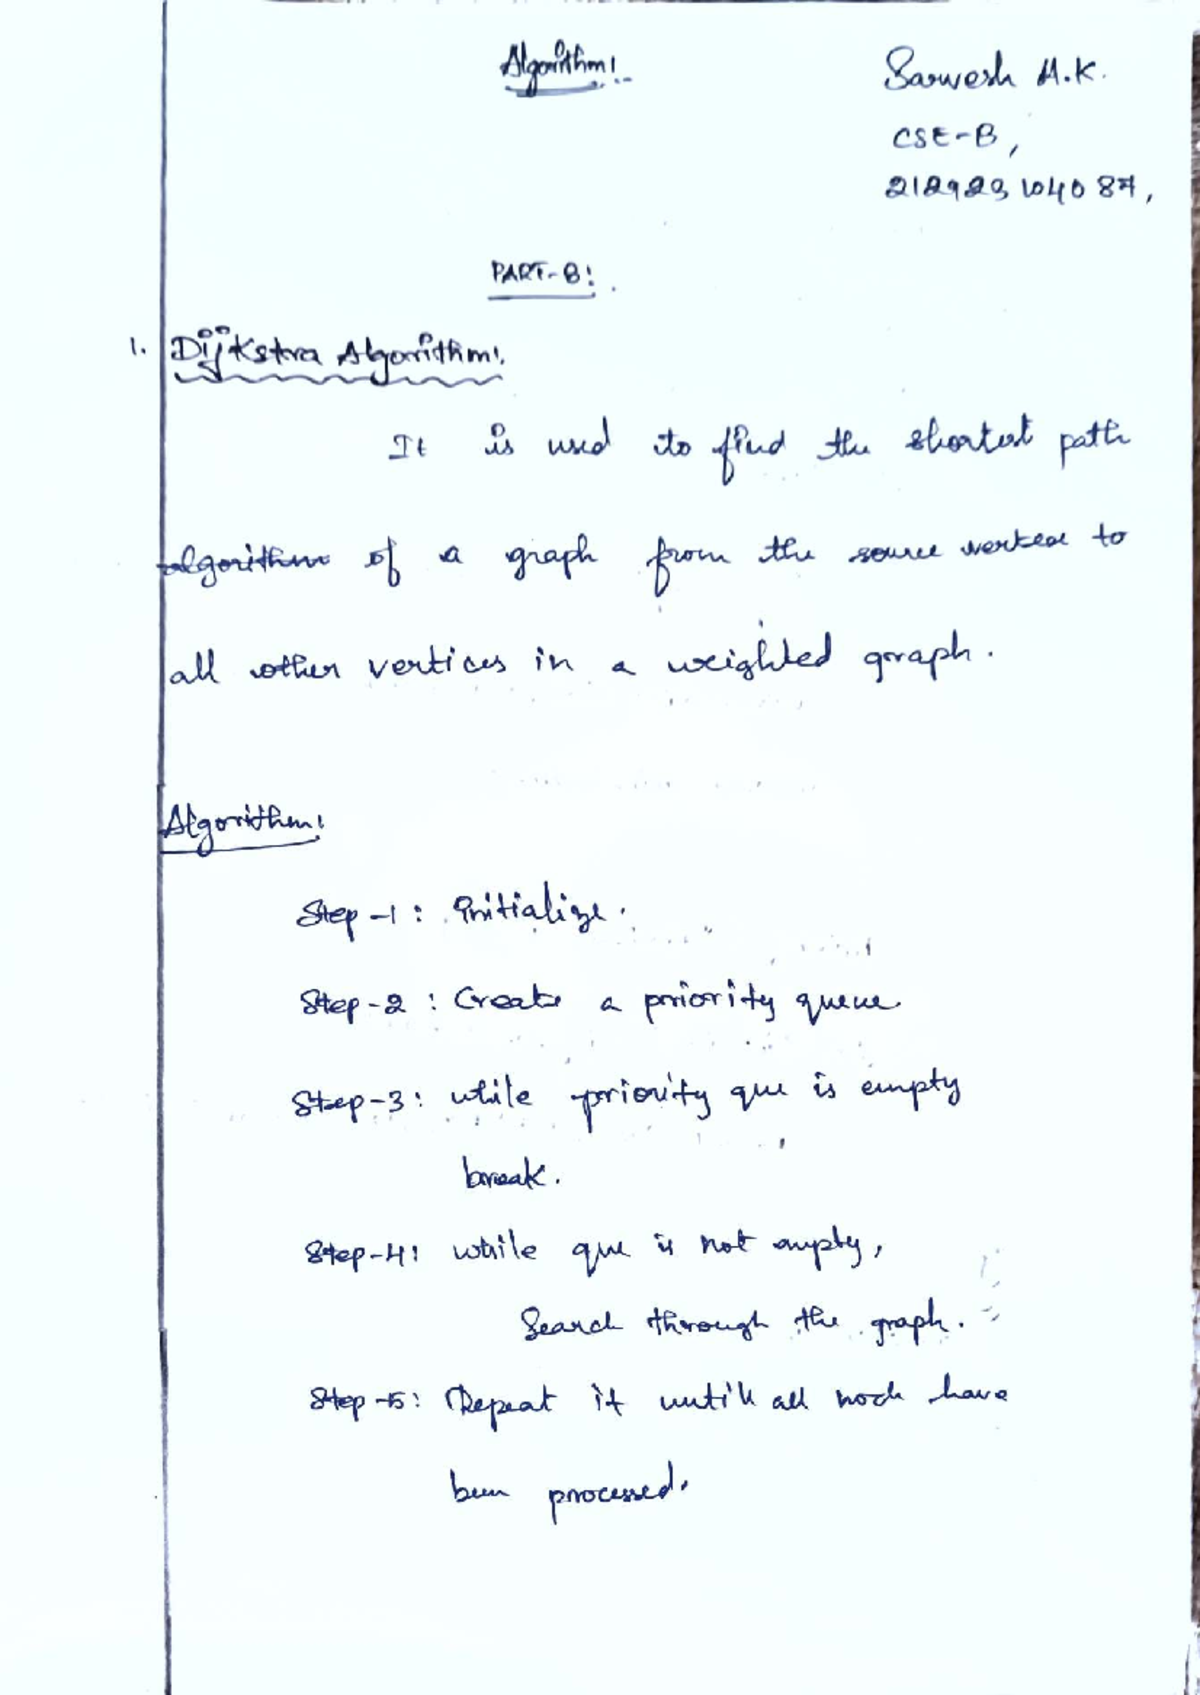 Algorithm:
Sarwesh H.K.
CSE-B,
212923104087,
PART-B:
1. Dijkstra Algorithm:
It is used to find the shortest path
algorithm of a graph from the source vertex to
all other vertices in a weighted graph.
Algorithm:
Step-1: Initialize.
Step-2: Create a priority queue
Step-3: while priority que is empty
break.
Step-4: while que is not empty,
Search through the graph.
Step-5: Repeat it untill all node have
been processed.